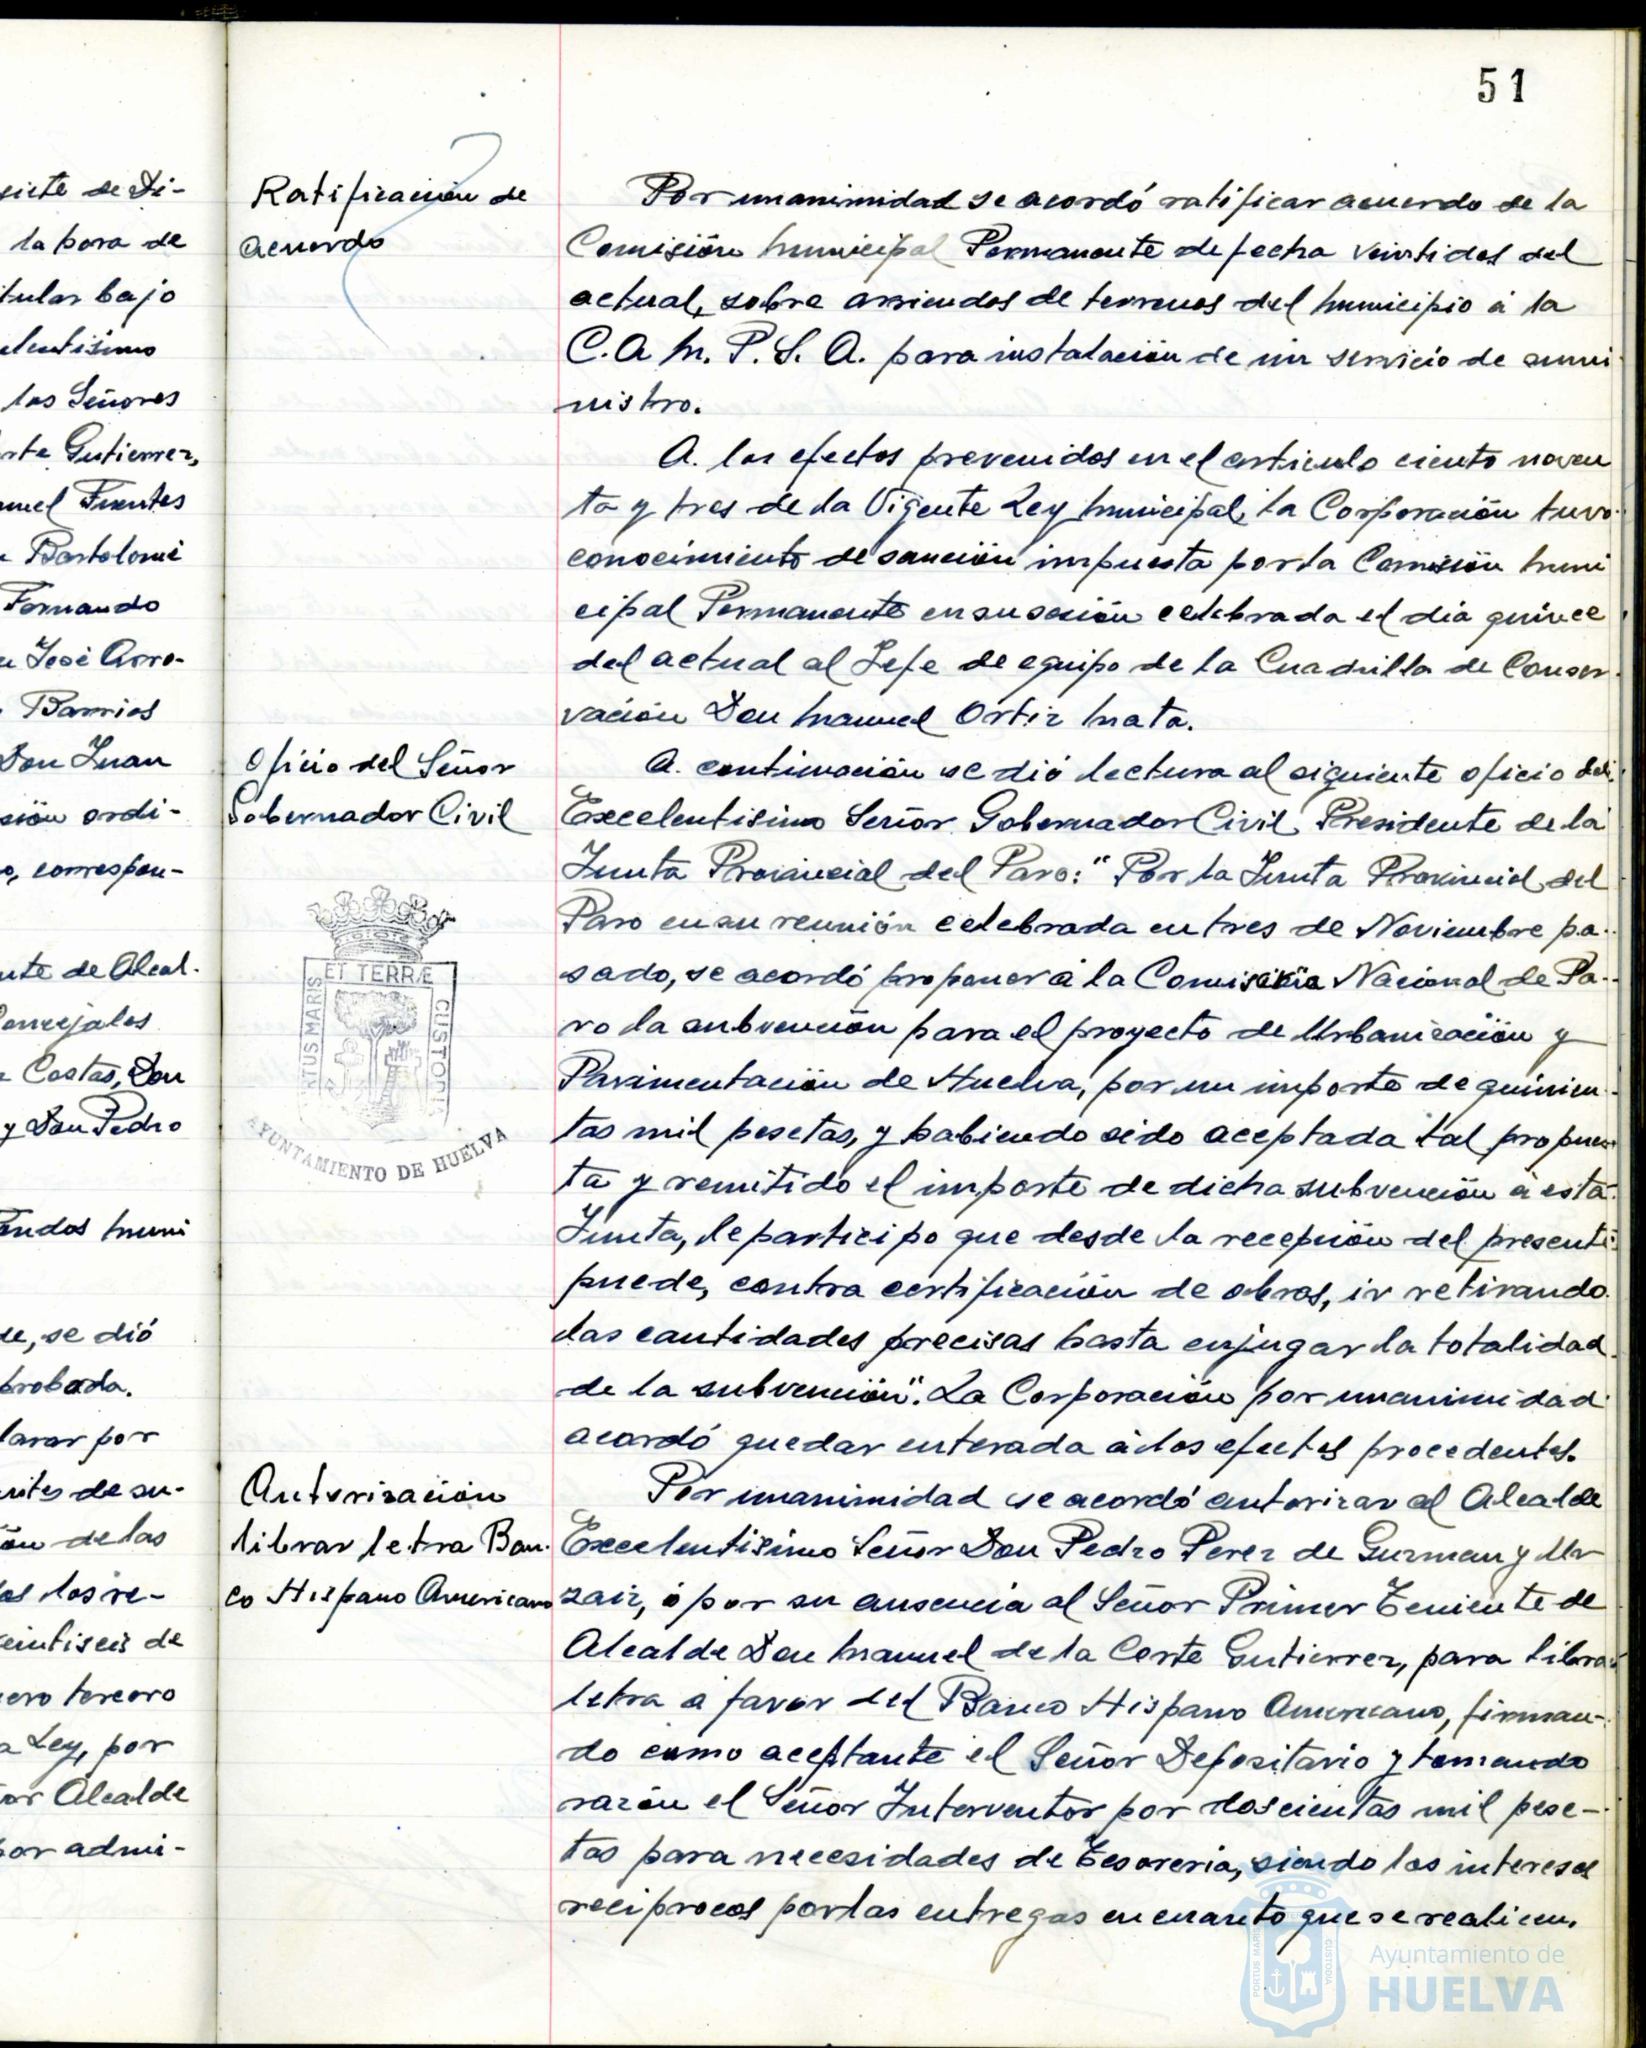 51
siete de Di-
la hora de
itular bajo
elentisimo
los Señores
orte Gutierrez,
nuel Fuentes
n Bartolomé
Fernando
n José Arro-
Barrios
Don Juan
sión ordi-
o, correspon-
nte de Alcal-
Concejales
Costas, Don
y Don Pedro
Fondos Muni
de, se dió
probada.
larar por
antes de su-
ón de las
los los re-
veintiseis de
mero tercero
a Ley, por
or Alcalde
por admi-
Ratificación de
acuerdo
Por unanimidad se acordó ratificar acuerdo de la
Comisión Municipal Permanente de fecha veintidos del
actual, sobre arriendos de terrenos del Municipio á la
C. A. M. P. S. A. para instalación de un servicio de sumi
nistro.
A. los efectos prevenidos en el articulo ciento noven
ta y tres de la Vigente Ley Municipal, la Corporación tuvo
conocimiento de sanción impuesta por la Comisión Muni
cipal Permanente en su sesión celebrada el dia quince
del actual al Jefe de equipo de la Cuadrilla de Conser-
vación Don Manuel Ortiz Mata.
Oficio del Señor
Gobernador Civil
A. continuación se dió lectura al siguiente oficio del
Excelentisimo Señor Gobernador Civil, Presidente de la
Junta Provincial del Paro: "Por la Junta Provincial del
Paro en su reunión celebrada en tres de Noviembre pa-
sado, se acordó proponer á la Comisaria Nacional de Pa-
ro la subvención para el proyecto de Urbanización y
Pavimentación de Huelva, por un importe de quinien-
tas mil pesetas, y habiendo sido aceptada tal propues-
ta y remitido el importe de dicha subvención á esta
Junta, le participo que desde la recepción del presente
puede, contra certificación de obras, ir retirando
las cantidades precisas hasta enjugar la totalidad
de la subvención". La Corporación por unanimidad
acordó quedar enterada á los efectos procedentes.
Autorización
librar letra Ban-
co Hispano Americano
Por unanimidad se acordó autorizar al Alcalde
Excelentisimo Señor Don Pedro Perez de Guzman y Ur
zaiz, ó por su ausencia al Señor Primer Teniente de
Alcalde Don Manuel de la Corte Gutierrez, para librar
letra a favor del Banco Hispano Americano, firman-
do como aceptante el Señor Depositario y tomando
razón el Señor Interventor por doscientas mil pese-
tas para necesidades de Tesoreria, siendo los intereses
reciprocos por las entregas en cuanto que se realicen.
PORTUS MARIS
ET TERRÆ
CUSTODIA
AYUNTAMIENTO DE HUELVA
PORTUS MARIS
CUSTODIA
Ayuntamiento de
HUELVA